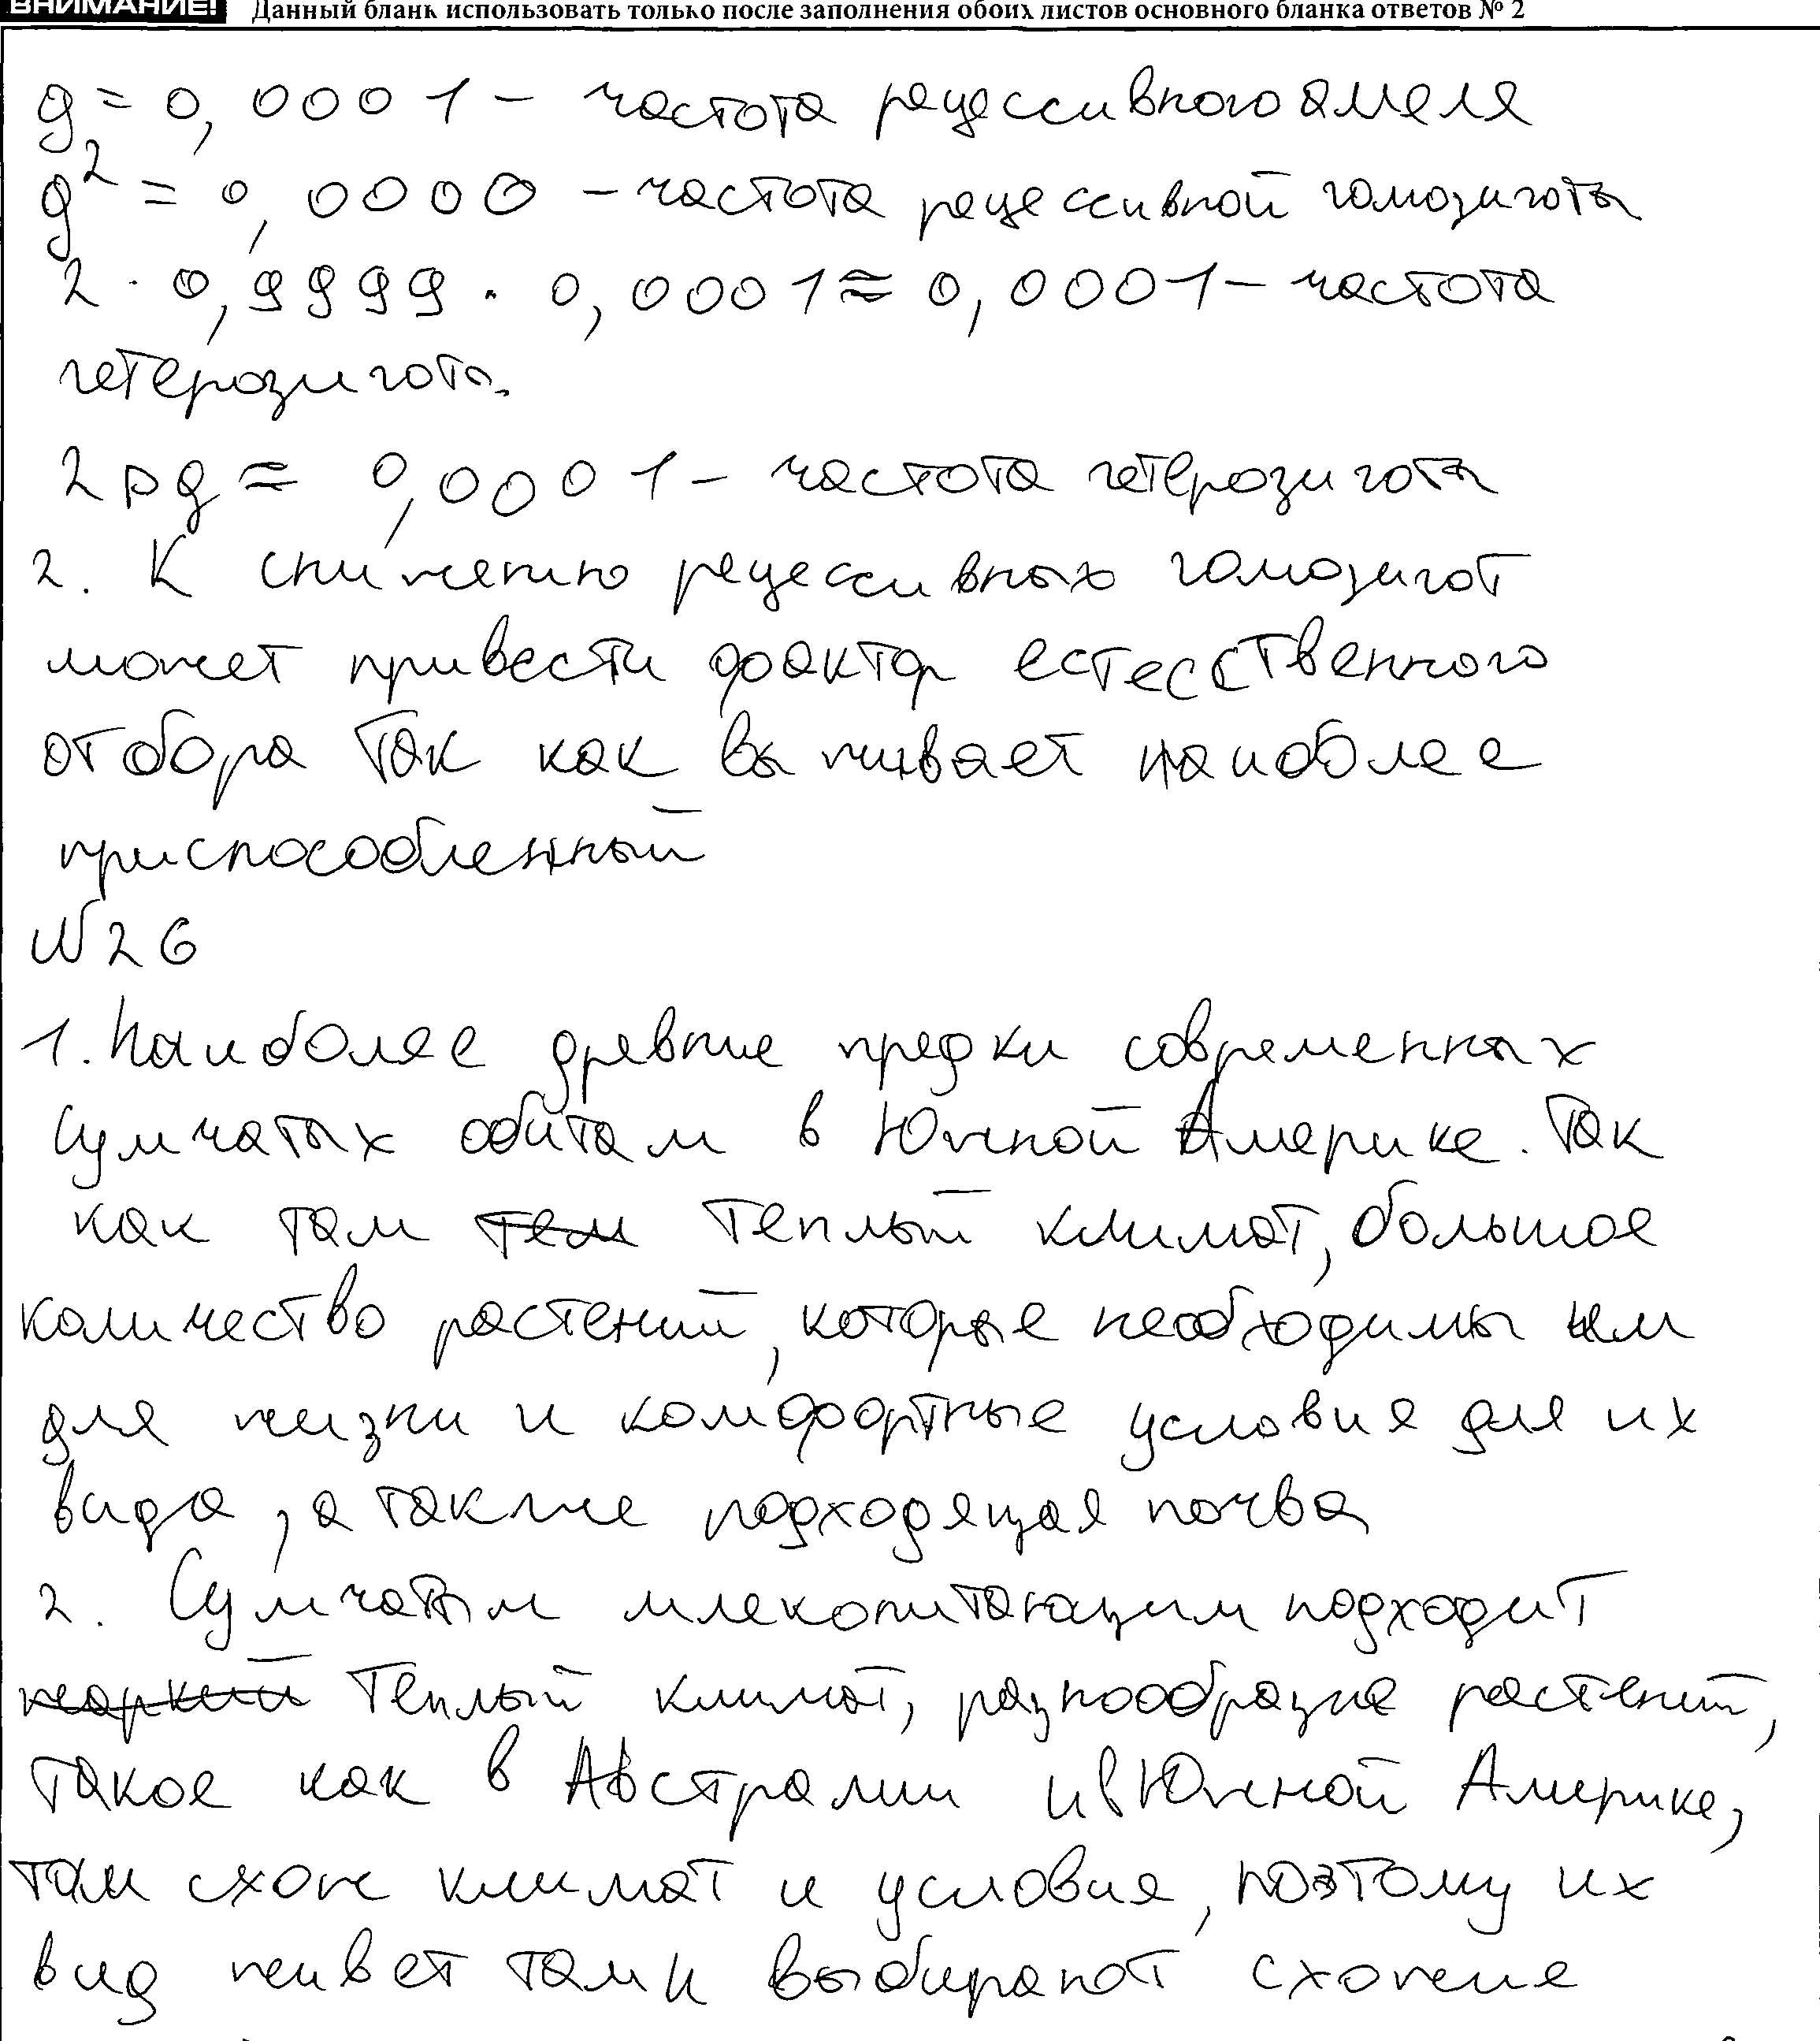 ВНИМАНИЕ! Данный бланк использовать только после заполнения обоих листов основного бланка ответов № 2
g = 0,0001 – частота рецессивного аллеля
g² = 0,0000 – частота рецессивной гомозиготы
2 · 0,9999 · 0,0001 ≈ 0,0001 – частота
гетерозигота.
2pg ≈ 0,0001 – частота гетерозиготы
2. К снижению рецессивных гомозигот
может привести фактор естесственного
отбора Так как выживает наиболее
приспособленный
№26
1. Наиболее древние предки современных
сумчатых обитали в Южной Америке. Так
как там тем теплый климат, большое
количество растений, которые необходимы им
для жизни и комфортные условия для их
вида, а также подходящая почва
2. Сумчатым млекопитающим подходит
жаркий теплый климат, разнообразие растений,
такое как в Австралии и в Южной Америке,
там схож климат и условия, поэтому их
вид живет там и выбирают схожие